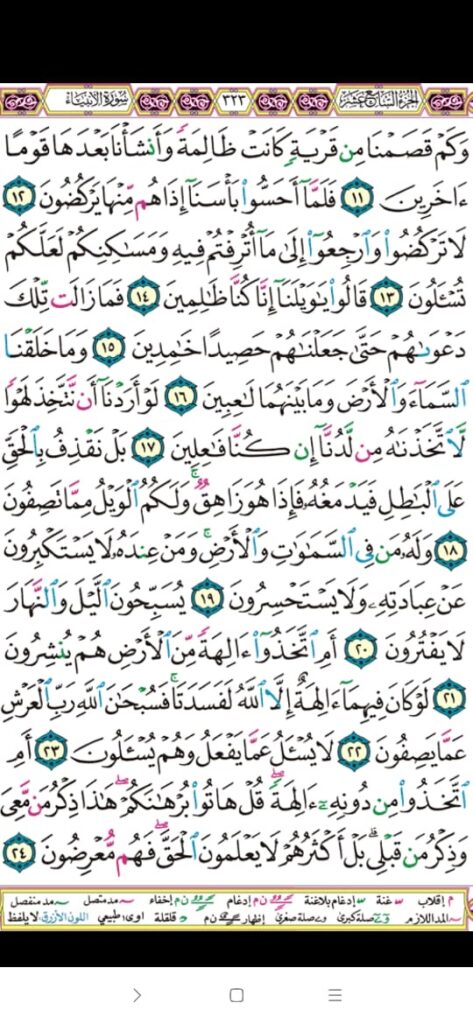 الجزء السابع عشر ٣٢٣ سورة الأنبياء
وَكَمْ قَصَمْنَا مِن قَرْيَةٍ كَانَتْ ظَالِمَةً وَأَنشَأْنَا بَعْدَهَا قَوْمًا
ءَاخَرِينَ ١١ فَلَمَّآ أَحَسُّوا۟ بَأْسَنَآ إِذَا هُم مِّنْهَا يَرْكُضُونَ ١٢
لَا تَرْكُضُوا۟ وَٱرْجِعُوٓا۟ إِلَىٰ مَآ أُتْرِفْتُمْ فِيهِ وَمَسَٰكِنِكُمْ لَعَلَّكُمْ
تُسْـَٔلُونَ ١٣ قَالُوا۟ يَٰوَيْلَنَآ إِنَّا كُنَّا ظَٰلِمِينَ ١٤ فَمَا زَالَت تِّلْكَ
دَعْوَىٰهُمْ حَتَّىٰ جَعَلْنَٰهُمْ حَصِيدًا خَٰمِدِينَ ١٥ وَمَا خَلَقْنَا
ٱلسَّمَآءَ وَٱلْأَرْضَ وَمَا بَيْنَهُمَا لَٰعِبِينَ ١٦ لَوْ أَرَدْنَآ أَن نَّتَّخِذَ لَهْوًا
لَّٱتَّخَذْنَٰهُ مِن لَّدُنَّآ إِن كُنَّا فَٰعِلِينَ ١٧ بَلْ نَقْذِفُ بِٱلْحَقِّ
عَلَى ٱلْبَٰطِلِ فَيَدْمَغُهُۥ فَإِذَا هُوَ زَاهِقٌ ۚ وَلَكُمُ ٱلْوَيْلُ مِمَّا تَصِفُونَ
١٨ وَلَهُۥ مَن فِى ٱلسَّمَٰوَٰتِ وَٱلْأَرْضِ ۚ وَمَنْ عِندَهُۥ لَا يَسْتَكْبِرُونَ
عَنْ عِبَادَتِهِۦ وَلَا يَسْتَحْسِرُونَ ١٩ يُسَبِّحُونَ ٱلَّيْلَ وَٱلنَّهَارَ
لَا يَفْتُرُونَ ٢٠ أَمِ ٱتَّخَذُوٓا۟ ءَالِهَةً مِّنَ ٱلْأَرْضِ هُمْ يُنشِرُونَ
٢١ لَوْ كَانَ فِيهِمَآ ءَالِهَةٌ إِلَّا ٱللَّهُ لَفَسَدَتَا ۚ فَسُبْحَٰنَ ٱللَّهِ رَبِّ ٱلْعَرْشِ
عَمَّا يَصِفُونَ ٢٢ لَا يُسْـَٔلُ عَمَّا يَفْعَلُ وَهُمْ يُسْـَٔلُونَ ٢٣ أَمِ
ٱتَّخَذُوا۟ مِن دُونِهِۦٓ ءَالِهَةً ۖ قُلْ هَاتُوا۟ بُرْهَٰنَكُمْ ۖ هَٰذَا ذِكْرُ مَن مَّعِىَ
وَذِكْرُ مَن قَبْلِى ۗ بَلْ أَكْثَرُهُمْ لَا يَعْلَمُونَ ٱلْحَقَّ ۖ فَهُم مُّعْرِضُونَ ٢٤
م إقلاب غنة إدغام بلاغنة ن م إدغام ن م إخفاء مد متصل مد منفصل
المد اللازم صلة كبرى صلة صغرى إظهار ن م قلقلة طبيعي اللون الأزرق لا يلفظ